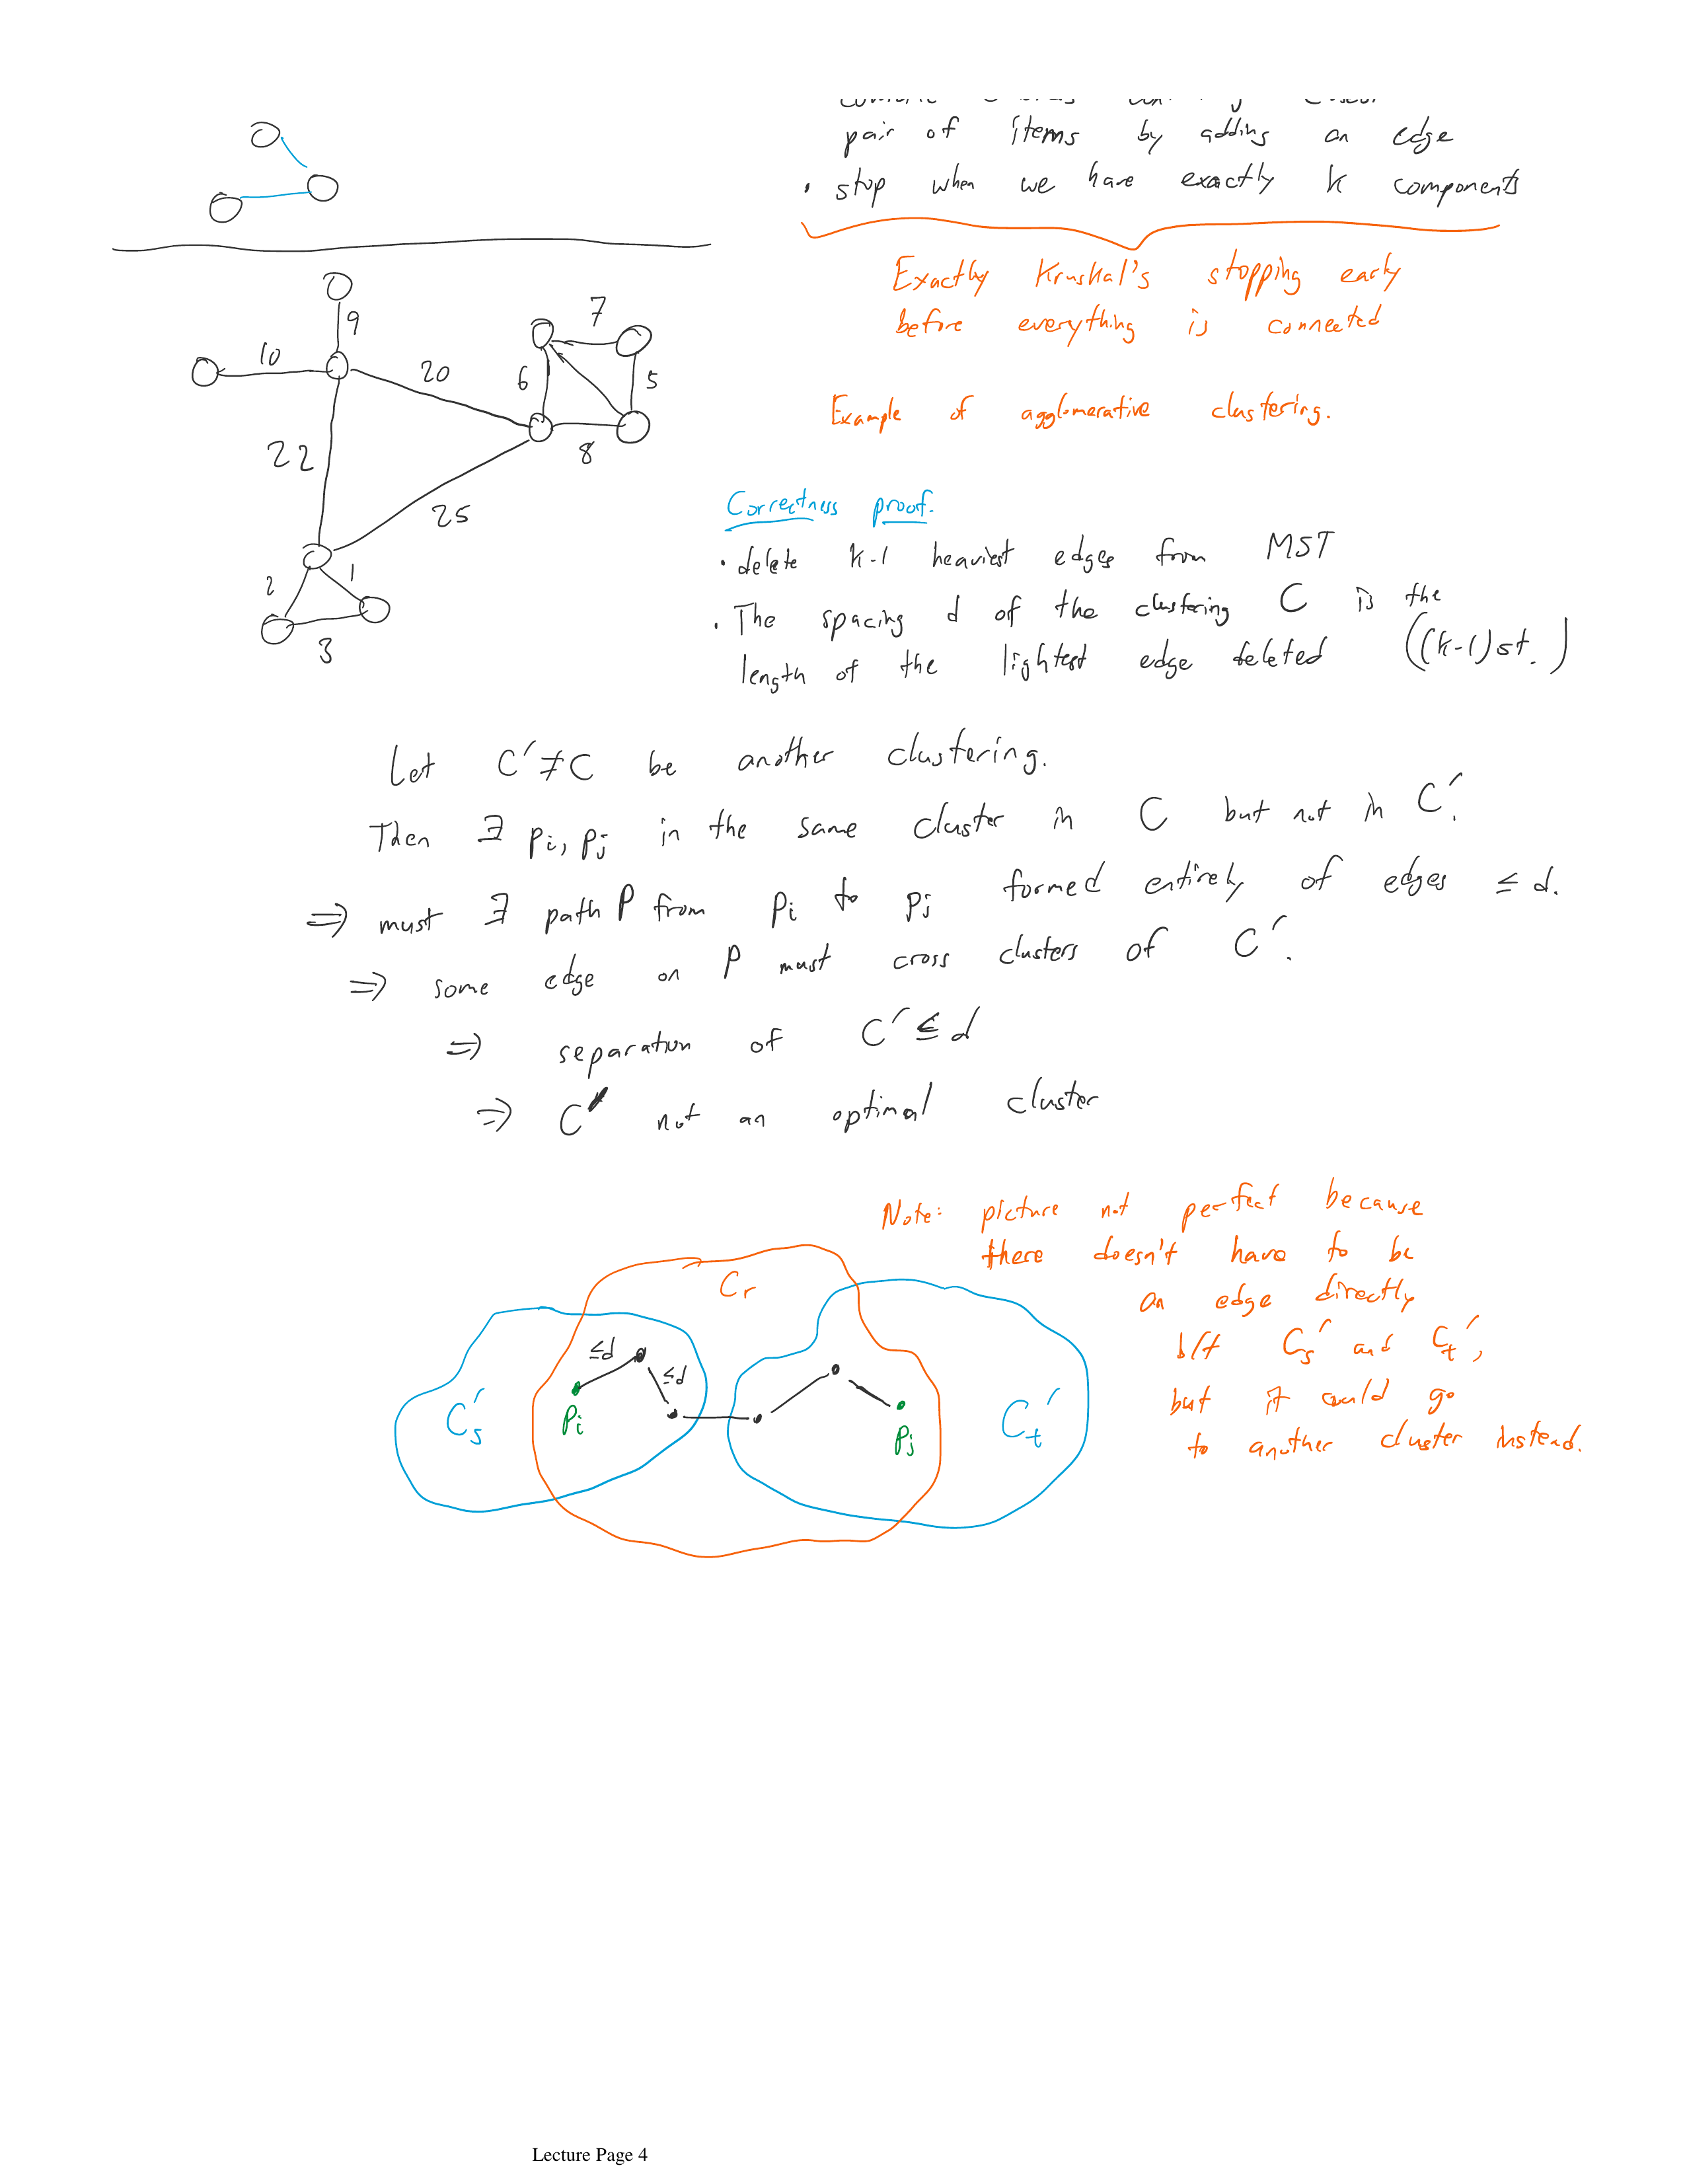 pair of items by adding an edge
• stop when we have exactly k components
Exactly Kruskal's stopping early
before everything is connected
Example of agglomerative clustering.
9
10
20
7
6
5
8
22
25
2
1
3
Correctness proof.
• delete k-1 heaviest edges from MST
• The spacing d of the clustering C is the
length of the lightest edge deleted ((k-1)st.)
Let C' ≠ C be another clustering.
Then ∃ pi, pj in the same cluster in C but not in C'.
⇒ must ∃ path P from pi to pj formed entirely of edges ≤ d.
⇒ some edge on P must cross clusters of C'.
⇒ separation of C' ≤ d
⇒ C' not an optimal cluster
Note: picture not perfect because
there doesn't have to be
an edge directly
b/t Cs' and Ct',
but it could go
to another cluster instead.
Cr
≤d
≤d
Cs'
Pi
Pj
Ct'
Lecture Page 4